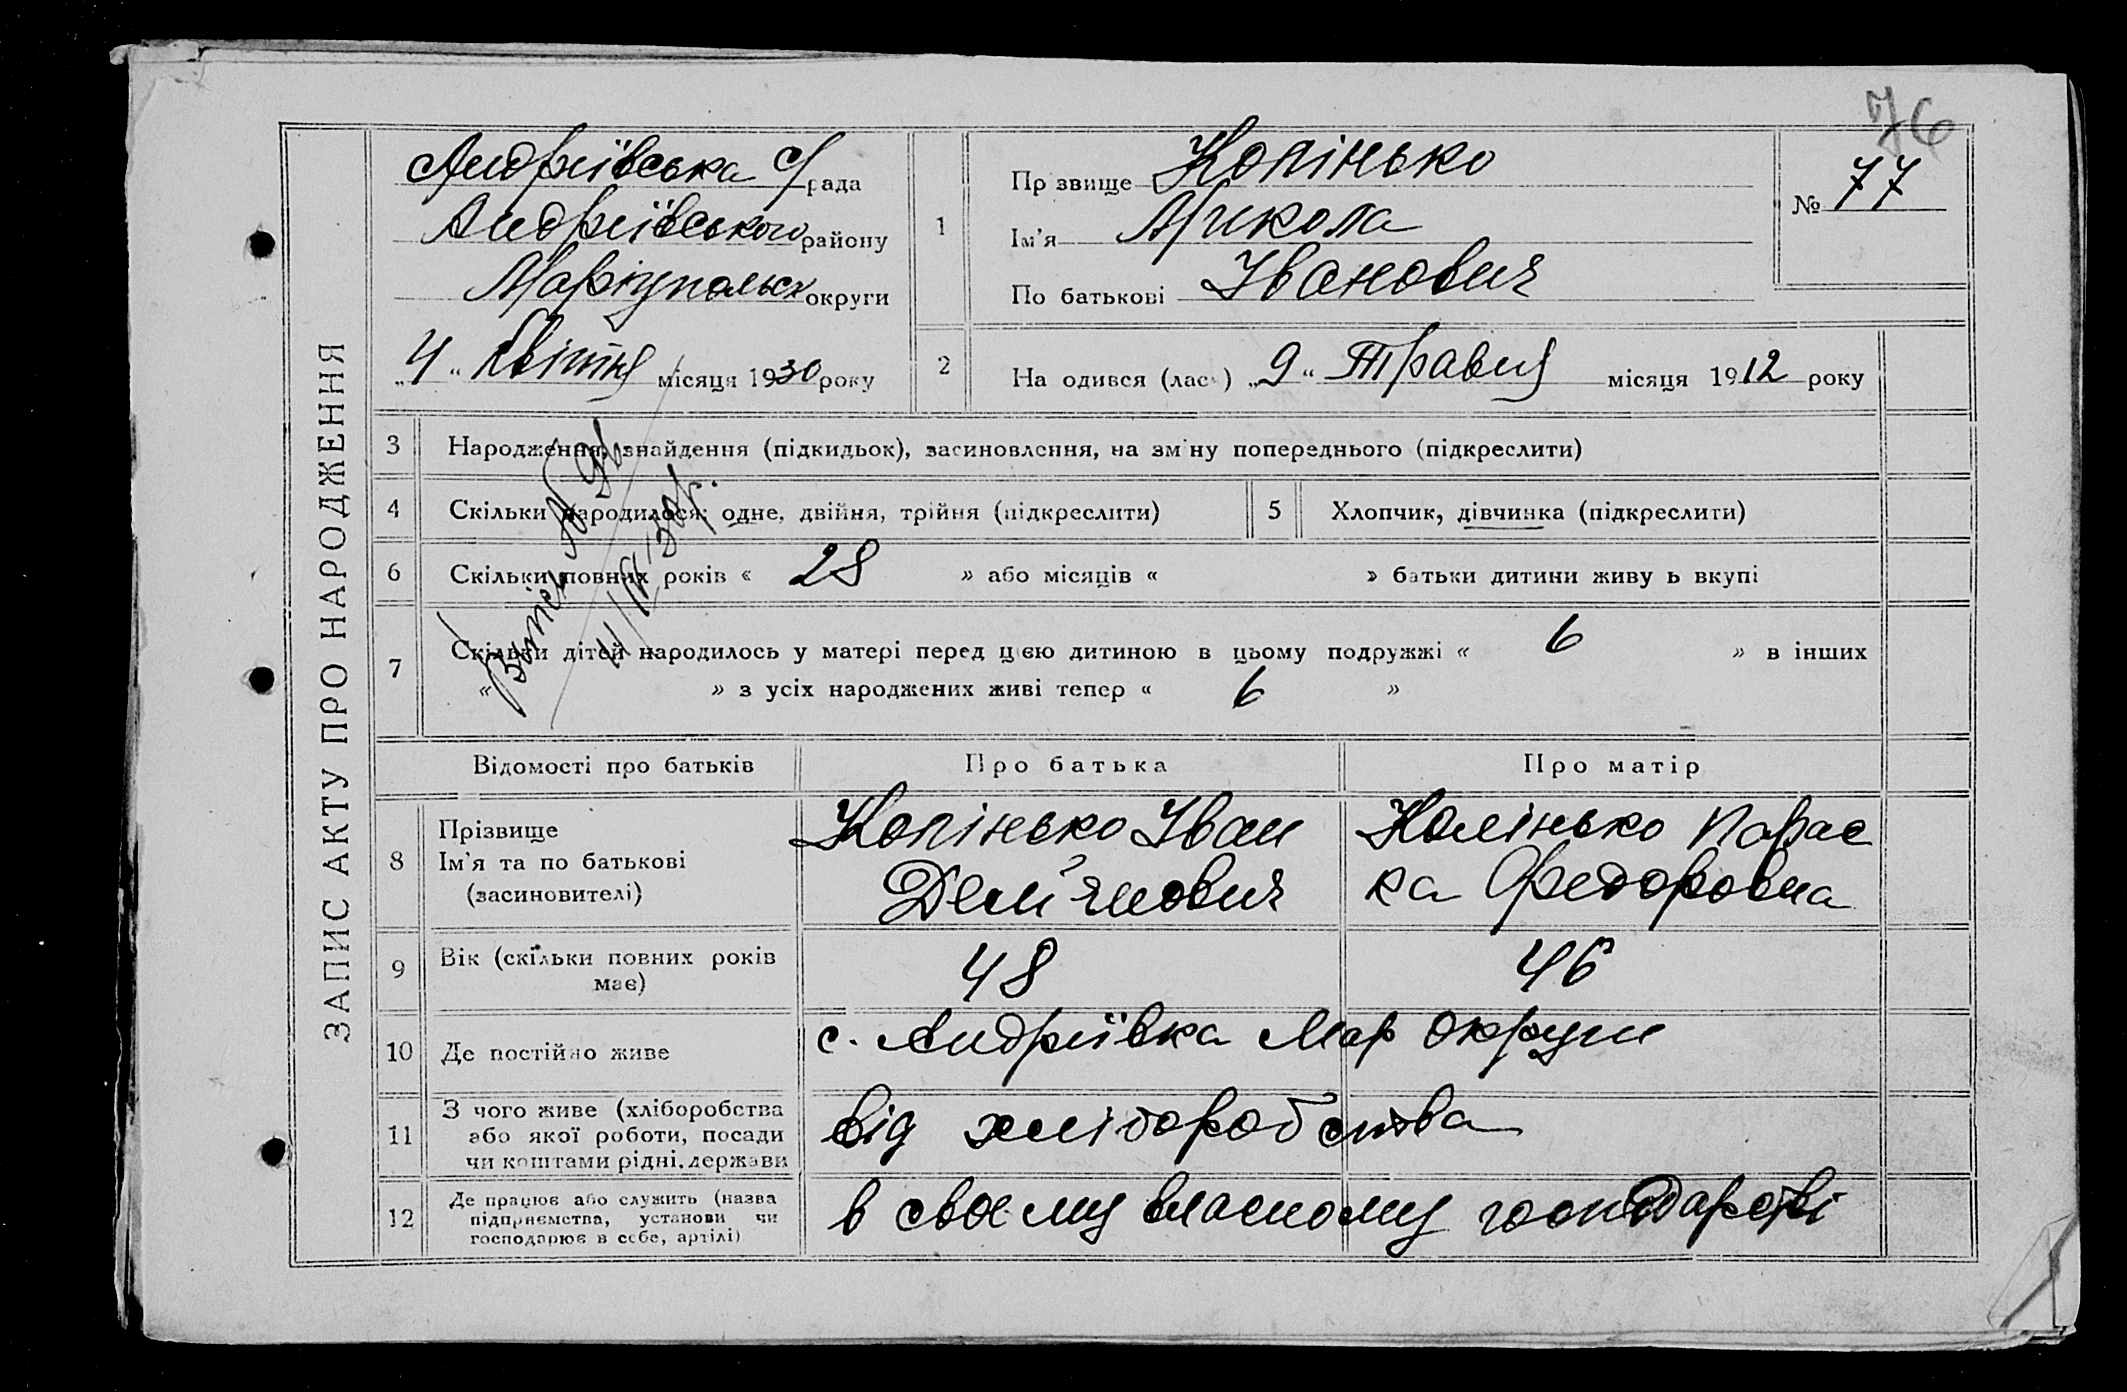 76
ЗАПИС АКТУ ПРО НАРОДЖЕННЯ
Андріївська С/рада
Андріївського району
Маріупольськ округи
„4“ квітня місяця 1930 року
1
Пр звище Копінько
Ім'я Микола
По батькові Іванович
№ 77
2 На одився (лась) „9“ Травня місяця 1912 року
3 Народження, знайдення (підкидьок), засиновлення, на зм ну попереднього (підкреслити)
4 Скільки народилося: одне, двійня, трійня (підкреслити) 5 Хлопчик, дівчинка (підкреслити)
6 Скільки повних років « 28 » або місяців « » батьки дитини живу ь вкупі
7 Скільки дітей народилось у матері перед цією дитиною в цьому подружжі « 6 » в інших
« » з усіх народжених живі тепер « 6 »
4/IV 30 р.
Відомості про батьків Про батька Про матір
8 Прізвище
Ім'я та по батькові
(засиновителі)
Копінько Іван
Дем'янович
Копінько Парас
ка Федоровна
9 Вік (скільки повних років
має)
48 46
10 Де постійно живе с. Андріївка Мар округи
11 З чого живе (хліборобства
або якої роботи, посади
чи коштами рідні, держави
від хліборобства
12 Де працює або служить (назва
підприємства, установи чи
господарює в себе, артілі)
в своєму власному господарстві